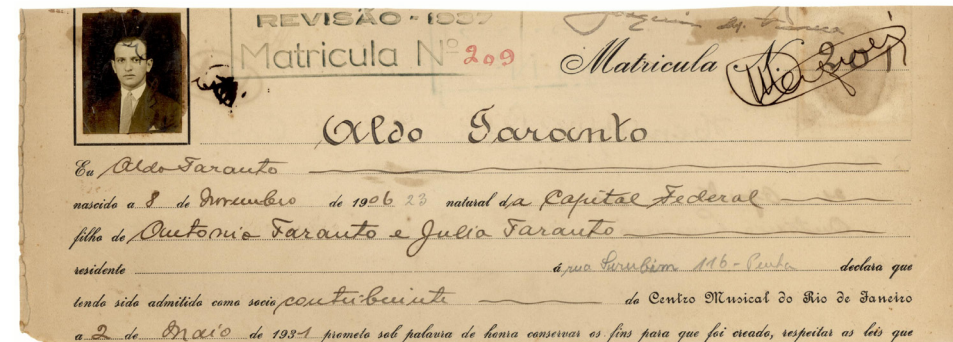 REVISÃO - 1937
Matricula Nº 209
Matricula
Aldo Taranto
Eu Aldo Taranto
nascido a 8 de Novembro de 1906 23 natural da Capital Federal
filho de Antonio Taranto e Julia Taranto
residente á rua Surubim 116 - Penha declara que
tendo sido admitido como socio contribuinte do Centro Musical do Rio de Janeiro
a 2 de Maio de 1931 prometo sob palavra de honra conservar os fins para que foi creado, respeitar as leis que